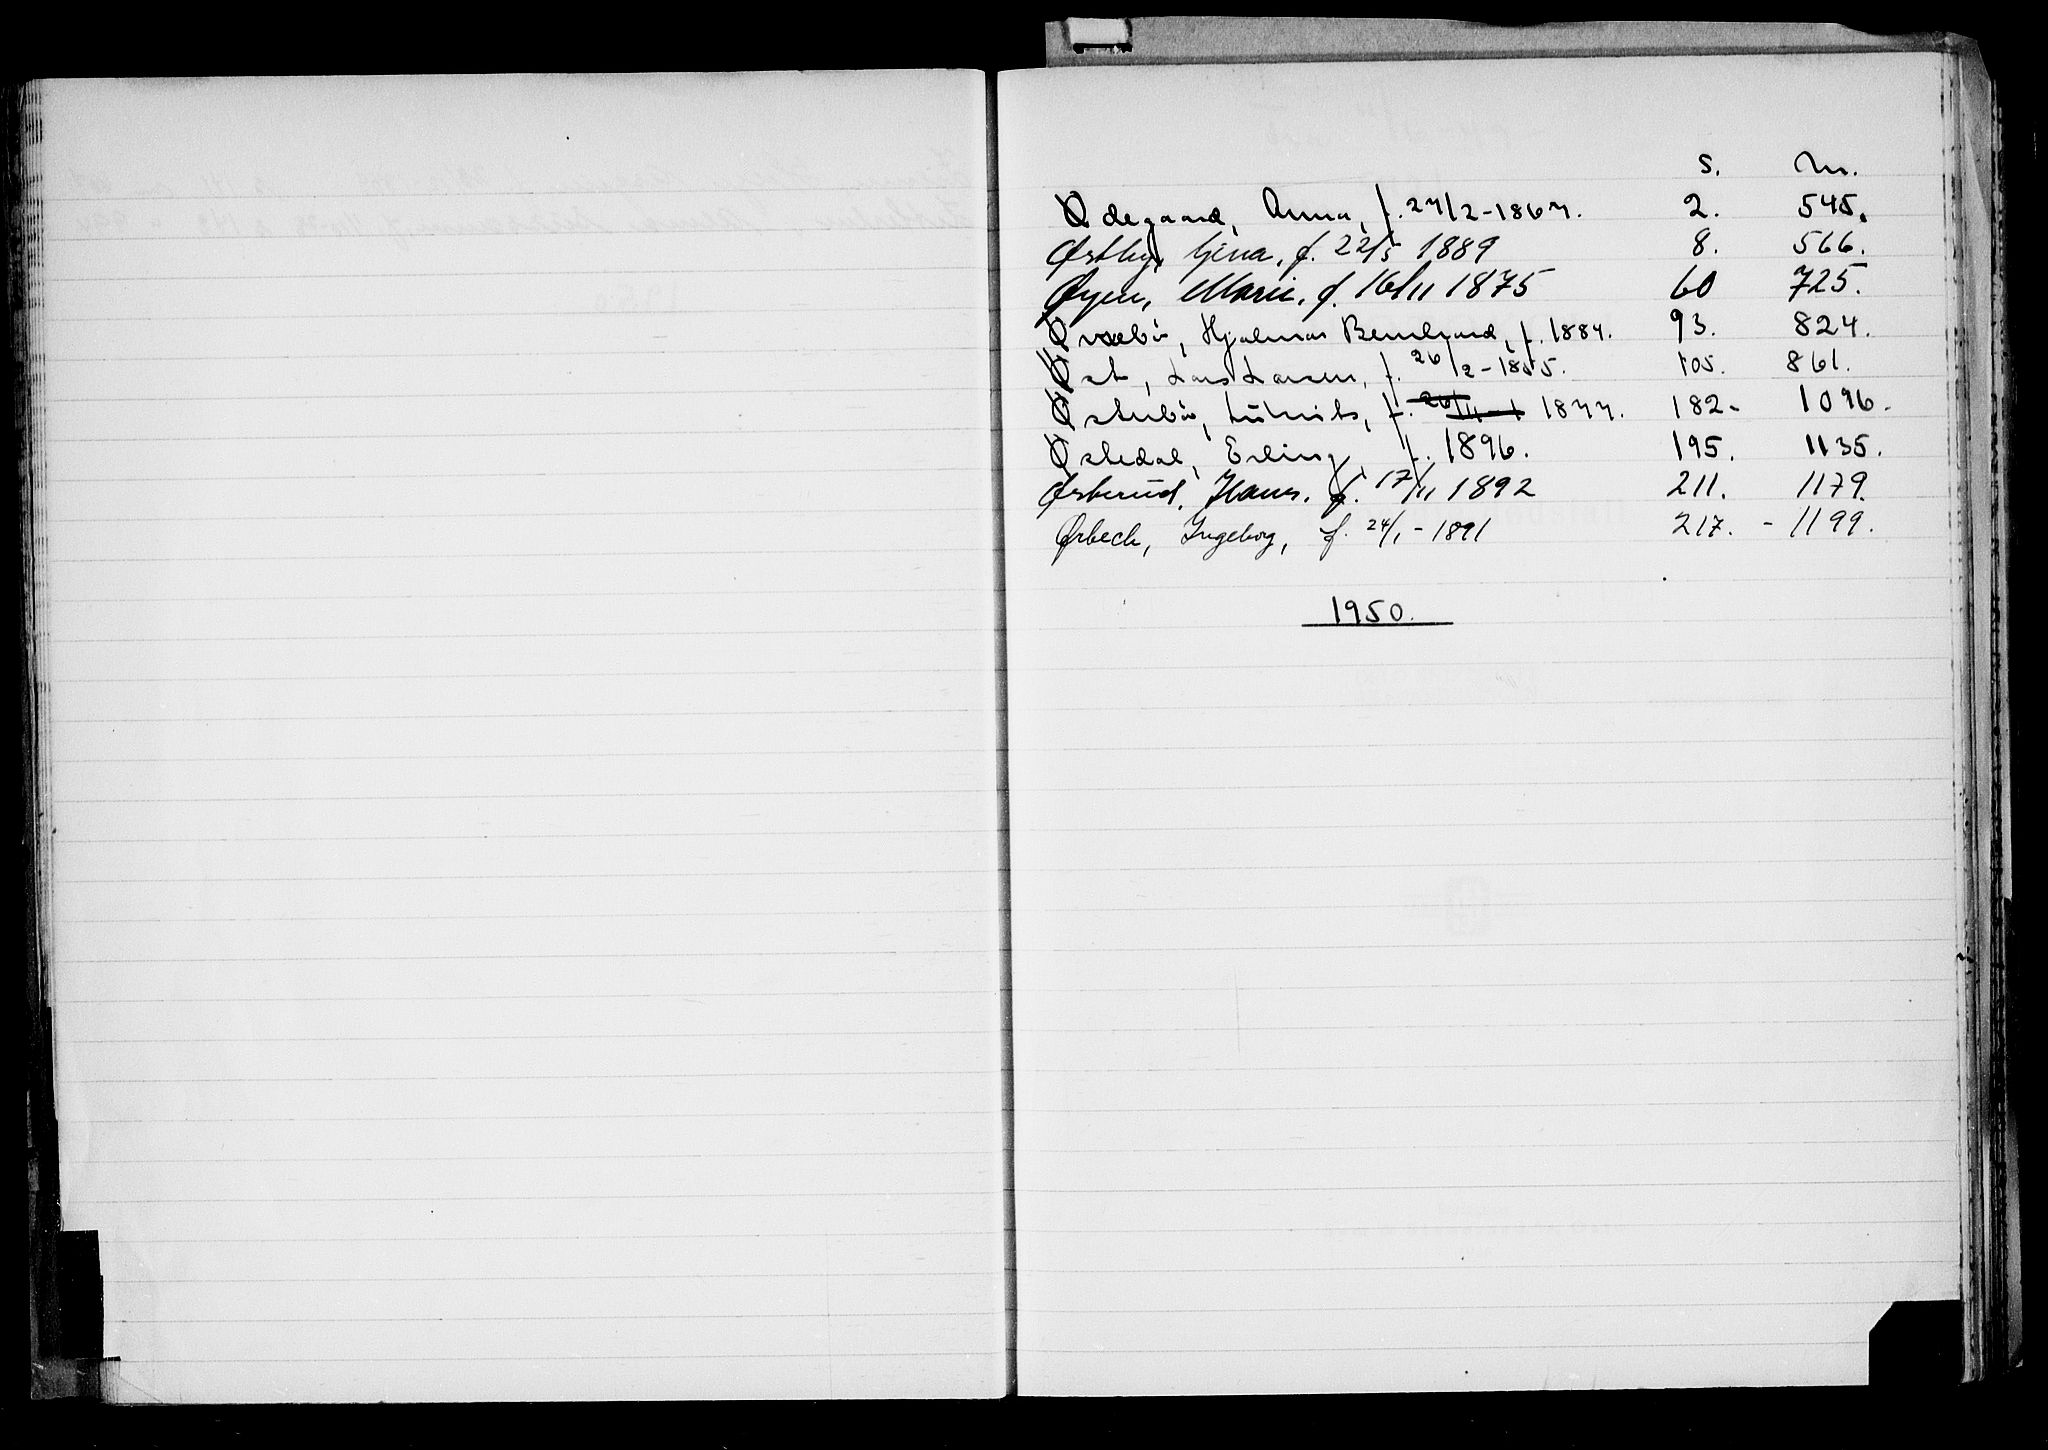 s. m.
Ødegaard, Anna, f. 27/2-1867. 2. 545.
Østby, Gina, f. 22/5 1889 8. 566.
Øyen, Marie, f. 16/11 1875 60 725.
Øvrebö, Hjalmar Bernhard, f. 1884. 93. 824.
Øst, Lars Larsen, f. 26/2-1855. 105. 861.
Østerbö, f. 1877. 182- 1096.
Østedal, Erling, f. 1896. 195. 1135.
Østerud, Hans, f. 17/11 1892 211. 1179.
Ørbeck, Ingeborg, f. 24/1-1891 217. - 1199.
1950.